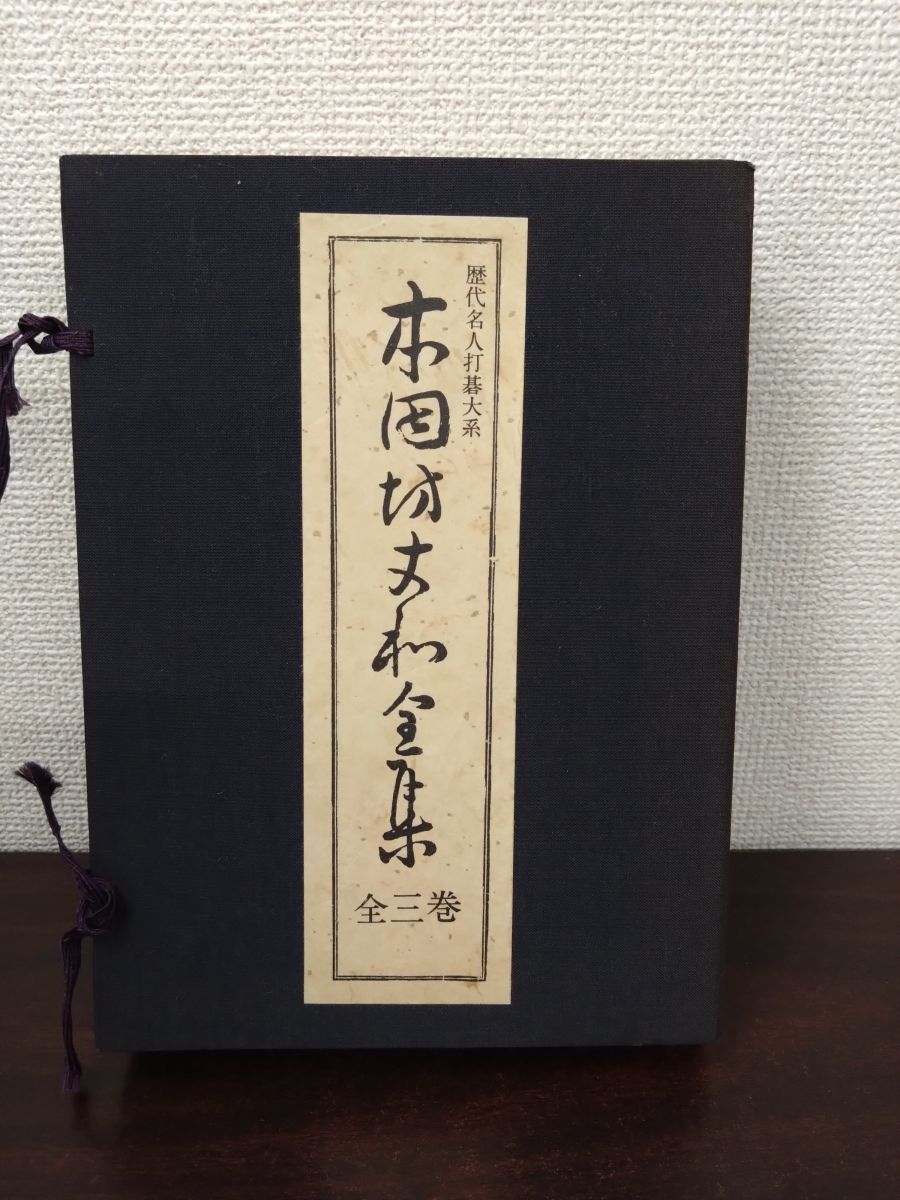 歴代名人打碁大系
本因坊丈和全集
全三巻